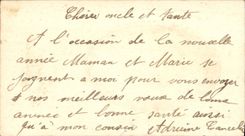 Chères oncle et tante
A l'occasion de la nouvelle
année Maman et Marie se
joignent a moi pour vous envoyer
nos meilleurs voeux de bonne
année et bonne santé aussi
qu'à mon cousin Adrienne